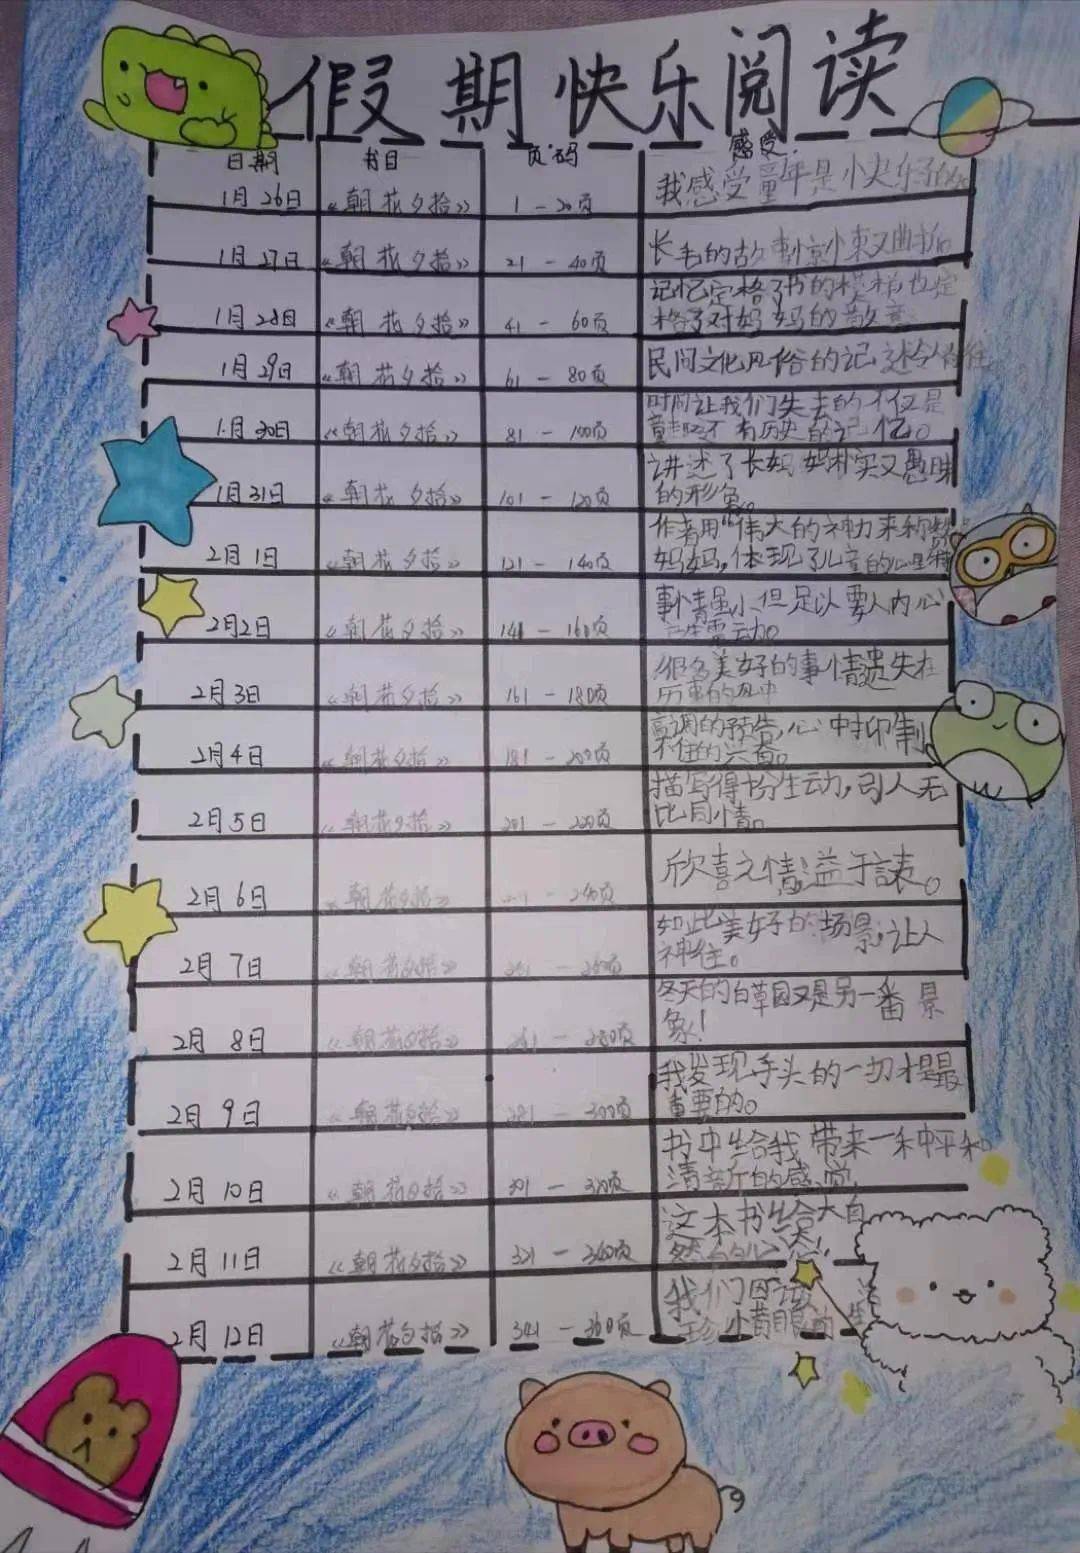 假期快乐阅读
日期 书目 页码 感受
1月26日 《朝花夕拾》 1-20页 我感受童年是小快乐
1月27日 《朝花夕拾》 21-40页 长毛的故事
1月28日 《朝花夕拾》 41-60页 记忆定格了书的模样也定
格了对妈妈的
1月29日 《朝花夕拾》 61-80页 民间文化风俗的记述令人
1月30日 《朝花夕拾》 81-100页 时间让我们失去的不仅是
有历史的记忆。
1月31日 《朝花夕拾》 101-120页 讲述了长妈妈朴实又愚昧
的形象。
2月1日 《朝花夕拾》 121-140页 作者用"伟大的神力来称赞
妈妈,体现了儿童的心里
2月2日 《朝花夕拾》 141-160页 事情虽小,但足以要人内心
2月3日 《朝花夕拾》 161-180页 很多美好的事情遗失在
历史的
2月4日 《朝花夕拾》 181-200页 的预告,心中抑制
不住的兴奋。
2月5日 《朝花夕拾》 201-220页 描写得十分生动,引人无
比同情。
2月6日 《朝花夕拾》 240页 欣喜之情溢于言表。
2月7日 《朝花夕拾》 如此美好的场景,让人
神往。
2月8日 《朝花夕拾》 261-280页 冬天的百草园又是另一番景
象!
2月9日 《朝花夕拾》 281-300页 我发现手头的一切才是最
重要的。
2月10日 《朝花夕拾》 书中给我带来一种平和
清新的感觉
2月11日 《朝花夕拾》 321-340页 这本书给大自
然
2月12日 《朝花夕拾》 341-360页 我们
珍惜眼前的